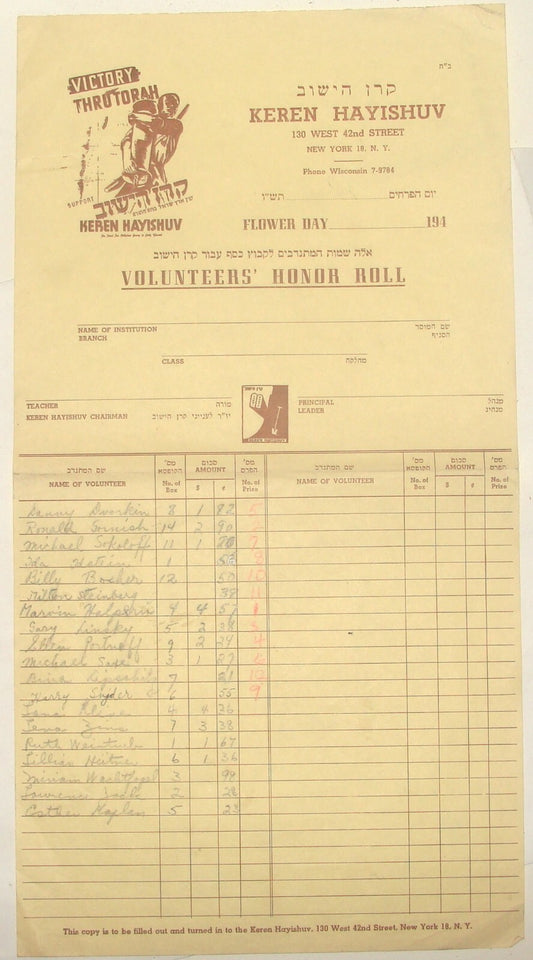 ב"ה
VICTORY
THRU TORAH
SUPPORT
קרן הישוב
KEREN HAYISHUV
קרן הישוב
KEREN HAYISHUV
130 WEST 42nd STREET
NEW YORK 18, N. Y.
Phone WIsconsin 7-9784
יום הפרחים תש"ו
FLOWER DAY 194
אלה שמות המתנדבים לקבוץ כסף עבור קרן הישוב
VOLUNTEERS' HONOR ROLL
NAME OF INSTITUTION שם המוסד
BRANCH הסניף
CLASS מחלקה
TEACHER מורה
KEREN HAYISHUV CHAIRMAN יו"ר לעניני קרן הישוב
קרן הישוב
KEREN HAYISHUV
PRINCIPAL מנהל
LEADER מנהיג
שם המתנדב מס' הקופסא סכום מס' הפרס שם המתנדב מס' הקופסא סכום מס' הפרס
NAME OF VOLUNTEER No. of Box AMOUNT $ ¢ No. of Prize NAME OF VOLUNTEER No. of Box AMOUNT $ ¢ No. of Prize
Danny Dvorkin 8 1 82 5
Ronald Gornish 14 2 90 2
Michael Sokoloff 11 1 7
Ida 1 8
Billy Bosher 12 50 10
Milton Steinberg 38 11
Marvin Halperin 4 4 57 1
Gary Linsky 5 2 38 3
Portnoff 9 2 24 4
Michael 3 1 27 6
7 21 12
Harry Snyder 6 55 9
Lena 4 4 36
Lena 7 3 38
Ruth Weintraub 1 1 67
Lillian 6 1 36
Miriam Wachtfogel 3 99
Lawrence 2 28
Esther Kaplan 5 23
This copy is to be filled out and turned in to the Keren Hayishuv, 130 West 42nd Street, New York 18, N. Y.